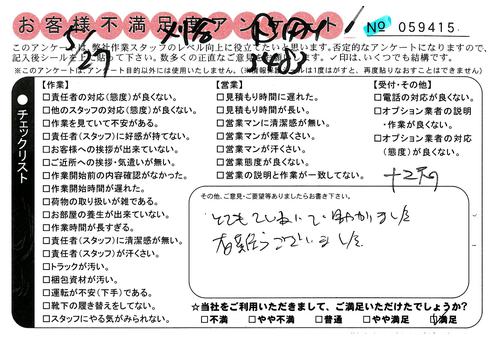 お客様不満足度アンケート
No 059415
5/27
このアンケートは、弊社作業スタッフのレベル向上に役立てたいと思います。否定的なアンケートになりますので、
記入後シールを上に貼って下さい。数多くの正直なご意見をお願いします。✓印は、いくつでも結構です。
チェックリスト
【作業】
□責任者の対応(態度)が良くない。
□他のスタッフの対応(態度)が良くない。
□作業を見ていて不安がある。
□責任者(スタッフ)に好感が持てない。
□お客様への挨拶が出来ていない。
□ご近所への挨拶・気遣いが無い。
□作業開始前の内容確認がなかった。
□作業開始時間が遅れた。
□荷物の取り扱いが雑である。
□お部屋の養生が出来ていない。
□作業時間が長すぎる。
□責任者(スタッフ)に清潔感が無い。
□責任者(スタッフ)が汗くさい。
□トラックが汚い。
□梱包資材が汚い。
□運転が不安(下手)である。
□靴下の履き替えをしてない。
□スタッフにやる気がみられない。
【営業】
□見積もり時間に遅れた。
□見積もり時間が長い。
□営業マンに清潔感が無い。
□営業マンが煙草くさい。
□営業マンが汗くさい。
□営業態度が良くない。
□営業の説明と作業が一致してない。
【受付・その他】
□電話の対応が良くない。
□オプション業者の説明
・作業が良くない。
□オプション業者の対応
(態度)が良くない。
その他、ご意見・ご要望等ありましたらお書き下さい。
とてもていねいで助かりました
有難うございました
☆当社をご利用いただきまして、ご満足いただけたでしょうか?
□不満 □やや不満 □普通 □やや満足 □満足